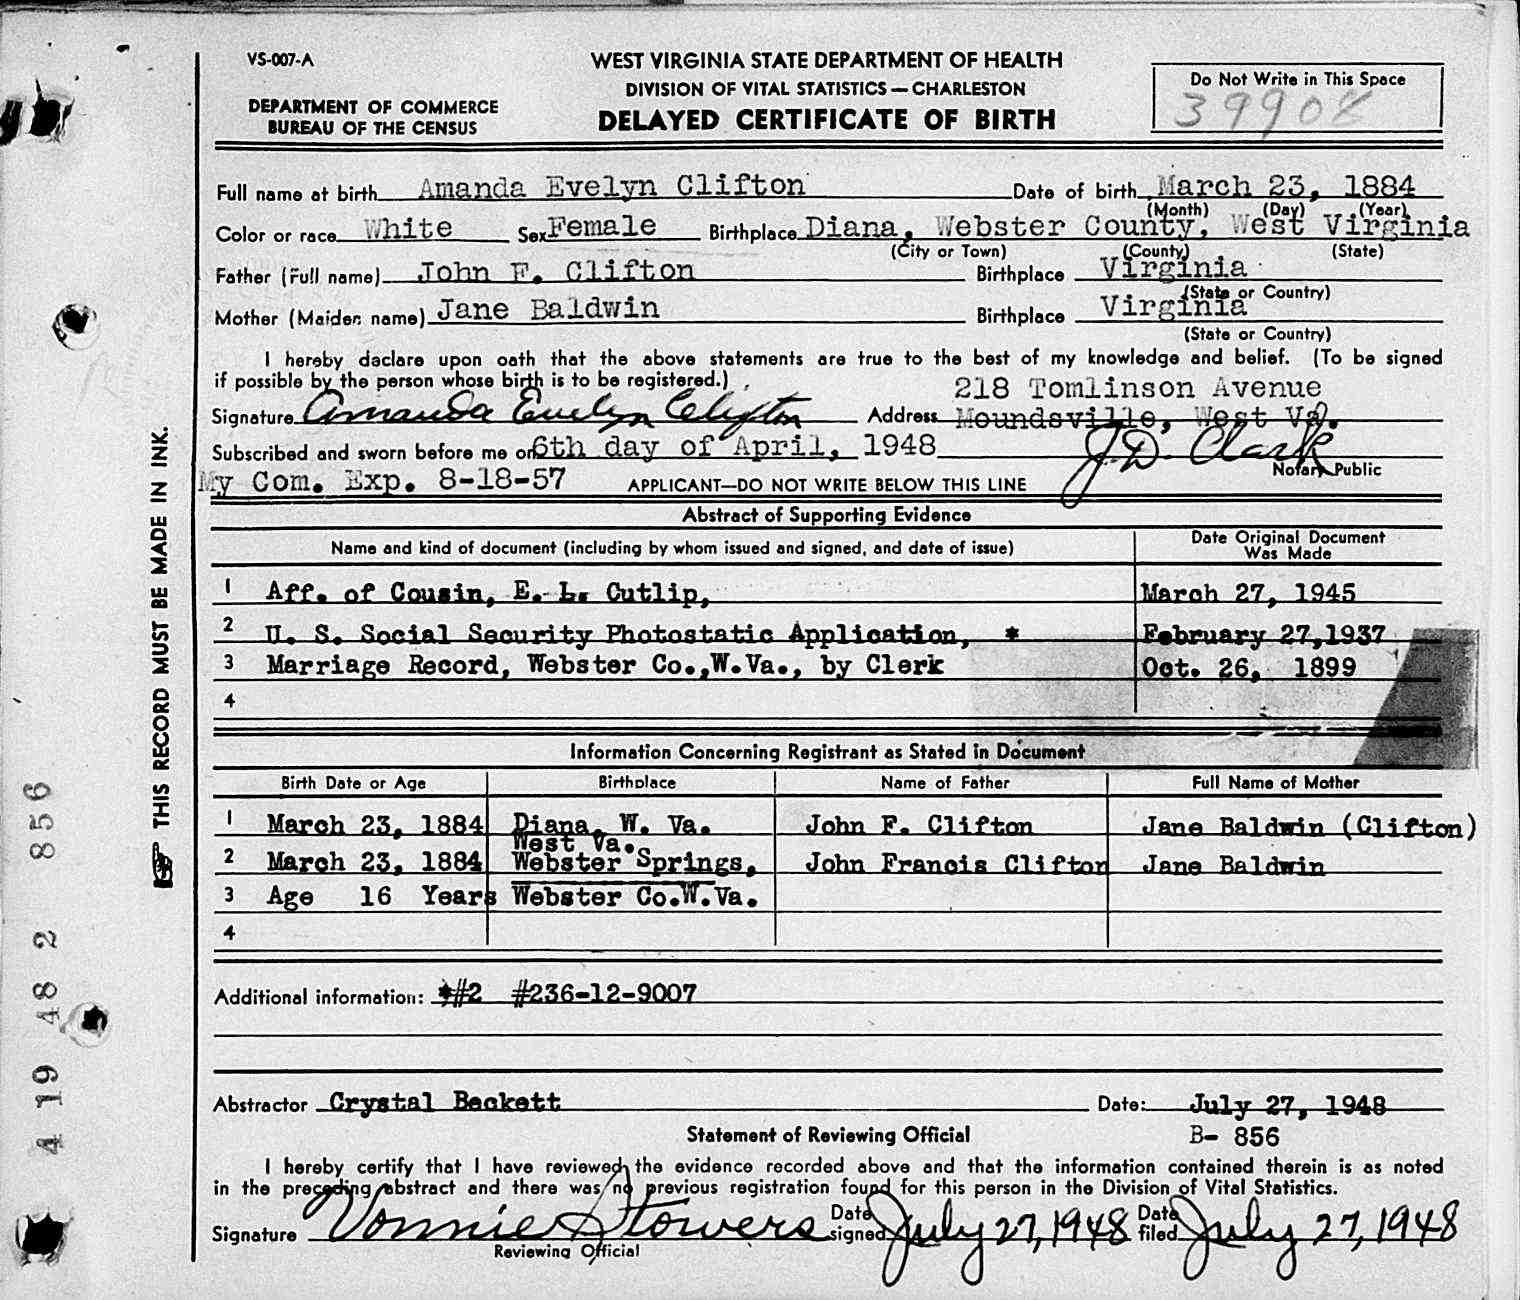 VS-007-A
DEPARTMENT OF COMMERCE
BUREAU OF THE CENSUS
WEST VIRGINIA STATE DEPARTMENT OF HEALTH
DIVISION OF VITAL STATISTICS — CHARLESTON
DELAYED CERTIFICATE OF BIRTH
Do Not Write in This Space
39908
Full name at birth Amanda Evelyn Clifton Date of birth March 23, 1884
(Month) (Day) (Year)
Color or race White Sex Female Birthplace Diana, Webster County, West Virginia
(City or Town) (County) (State)
Father (Full name) John F. Clifton Birthplace Virginia
(State or Country)
Mother (Maiden name) Jane Baldwin Birthplace Virginia
(State or Country)
I hereby declare upon oath that the above statements are true to the best of my knowledge and belief. (To be signed
if possible by the person whose birth is to be registered.)
218 Tomlinson Avenue
Signature Amanda Evelyn Clifton Address Moundsville, West Va.
Subscribed and sworn before me on 6th day of April, 1948 J.D. Clark
Notary Public
My Com. Exp. 8-18-57 APPLICANT—DO NOT WRITE BELOW THIS LINE
Abstract of Supporting Evidence
Name and kind of document (including by whom issued and signed, and date of issue) Date Original Document
Was Made
1 Aff. of Cousin, E. L. Cutlip, March 27, 1945
2 U. S. Social Security Photostatic Application, * February 27,1937
3 Marriage Record, Webster Co.,W.Va., by Clerk Oct. 26, 1899
4
Information Concerning Registrant as Stated in Document
Birth Date or Age Birthplace Name of Father Full Name of Mother
1 March 23, 1884 Diana, W. Va. John F. Clifton Jane Baldwin (Clifton)
West Va.
2 March 23, 1884 Webster Springs, John Francis Clifton Jane Baldwin
3 Age 16 Years Webster Co.W.Va.
4
Additional information: *#2 #236-12-9007
Abstractor Crystal Beckett Date: July 27, 1948
Statement of Reviewing Official B- 856
I hereby certify that I have reviewed the evidence recorded above and that the information contained therein is as noted
in the preceding abstract and there was no previous registration found for this person in the Division of Vital Statistics.
Signature Vonnie Stowers Date signed July 27, 1948 Date filed July 27, 1948
Reviewing Official
THIS RECORD MUST BE MADE IN INK.
4 19 48 2 856